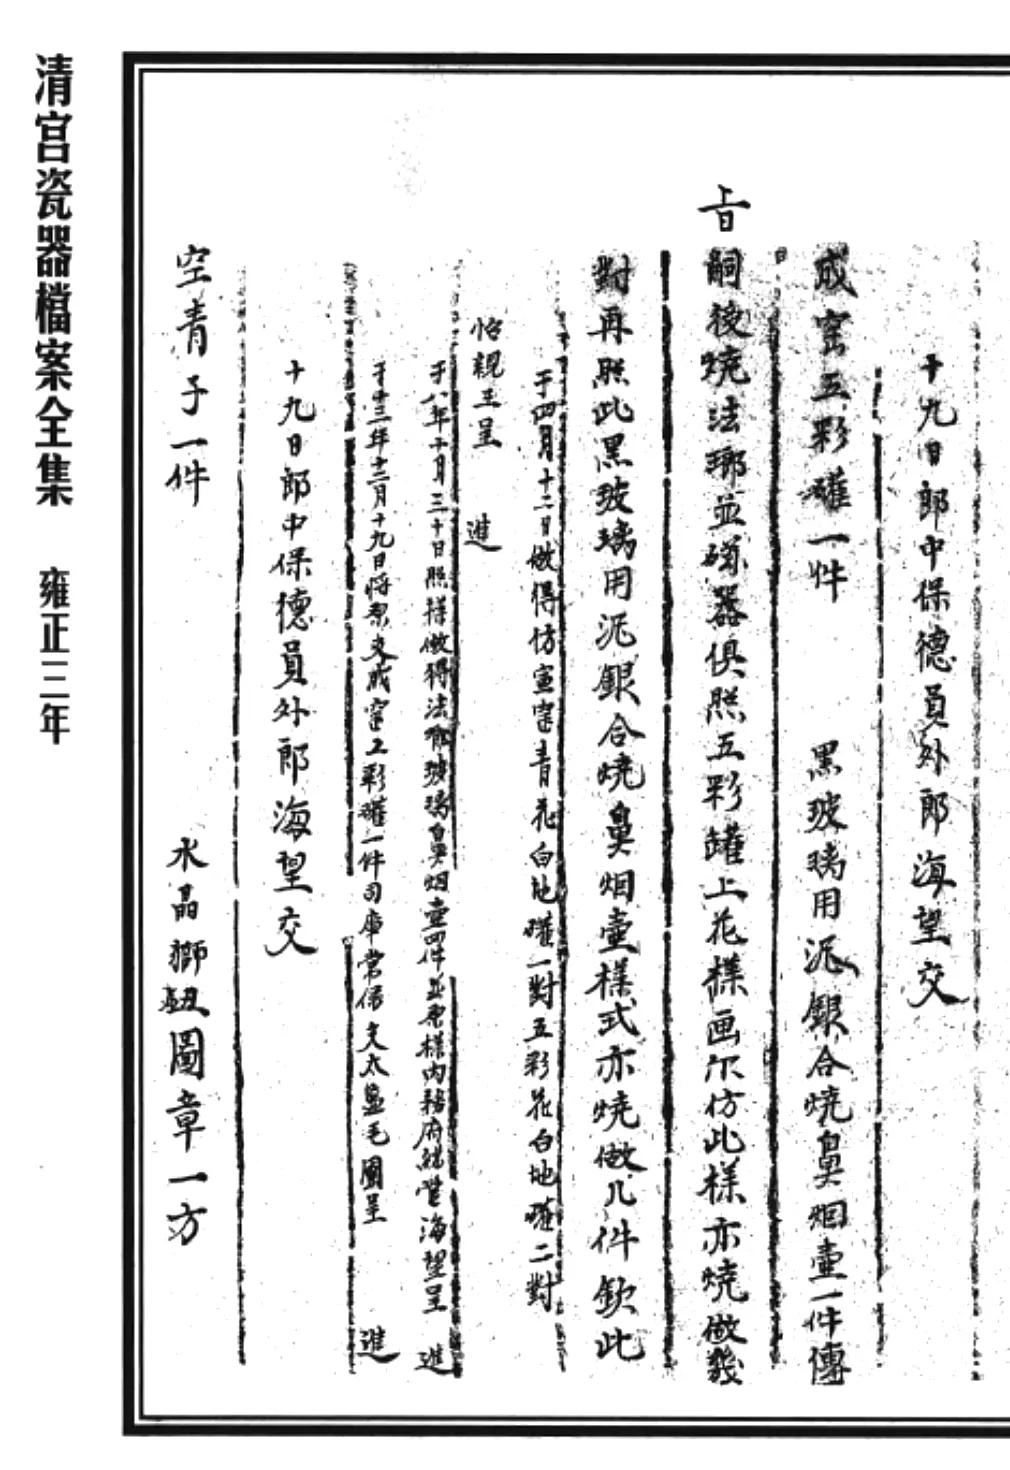 十九日郎中保德員外郎海望交
成窑五彩礶一件 黑玻璃用泥銀合燒鼻烟壶一件傳
旨嗣後燒法瑯並磁器俱照五彩罐上花樣画尔仿此樣亦燒做幾
對再照此黑玻璃用泥銀合燒鼻烟壶樣式亦燒做几件欽此
于四月十二日做得仿宣窑青花白地礶一對五彩花白地礶二對
怡親王呈 進
于八年十月三十日照樣做得法瑯玻璃鼻烟壶四件並原樣内務府總管海望呈 進
于十三年十二月十九日将原交成窑五彩礶一件司庫常保交太監毛團呈 進
十九日郎中保德員外郎海望交
空青子一件 水晶獅鈕圖章一方
清宫瓷器檔案全集 雍正三年